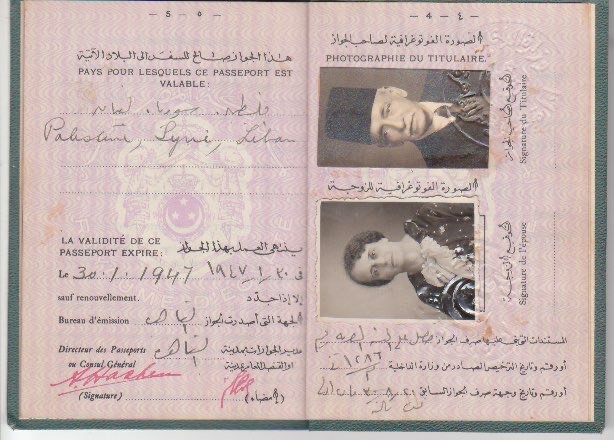 — 5 - ٥ —
هذا الجواز صالح للسفر الى البلاد الآتية
PAYS POUR LESQUELS CE PASSEPORT EST
VALABLE:
فلسطين سوريا لبنان
Palestine, Syrie, Liban
LA VALIDITÉ DE CE
PASSEPORT EXPIRE:
ينتهى العمل بهذا الجواز
Le 30.1.1947
فى ٣٠/١/١٩٤٧
sauf renouvellement.
إلا إذا جدد
Bureau d'émission
الجهة التى أصدرت الجواز
Directeur des Passeports
ou Consul Général
مدير الجوازات بمدينة
(Signature)
(إمضاء)
— 4 - ٤ —
الصورة الفوتوغرافية لصاحب الجواز
PHOTOGRAPHIE DU TITULAIRE.
توقيع صاحب الجواز
Signature du Titulaire
الصورة الفوتوغرافية للزوجة
توقيع الزوجة
Signature de l'Épouse
المستندات التى عليها صرف الجواز
أو رقم وتاريخ الترخيص الصادر من وزارة الداخلية
أو رقم وتاريخ وجهة صرف الجواز السابق